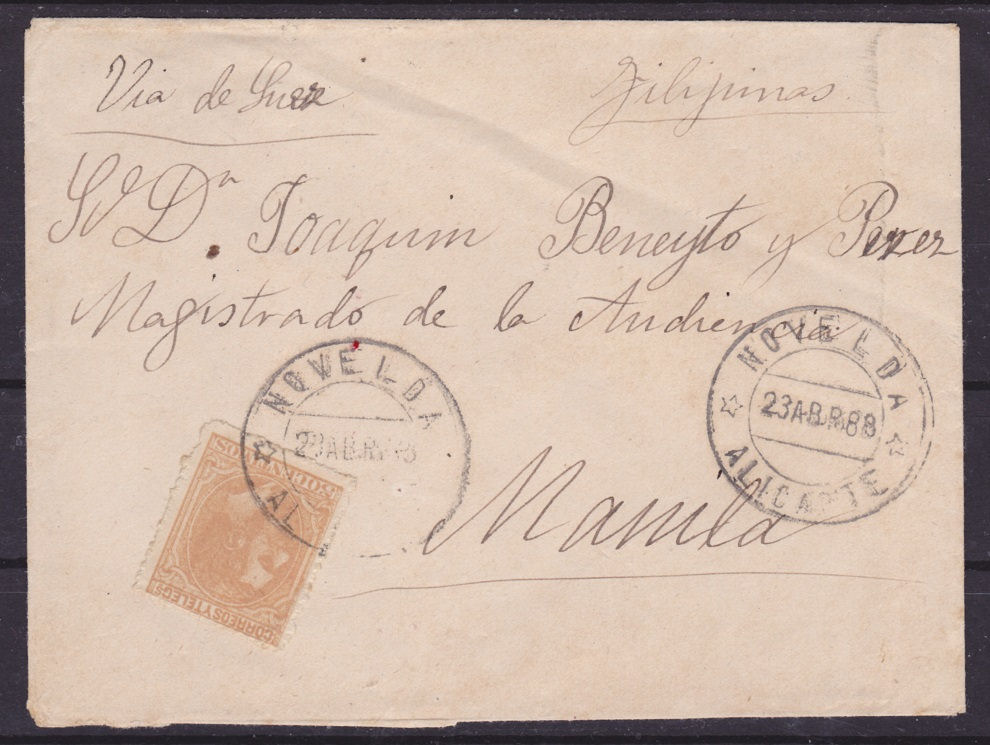 Via de Suez
Filipinas
Sr Dn Joaquin Beneyto y Perez
Magistrado de la Audiencia
NOVELDA
23 ABR 88
ALICANTE
NOVELDA
23 ABR 88
AL
Manila
CORREOS Y TELEGS